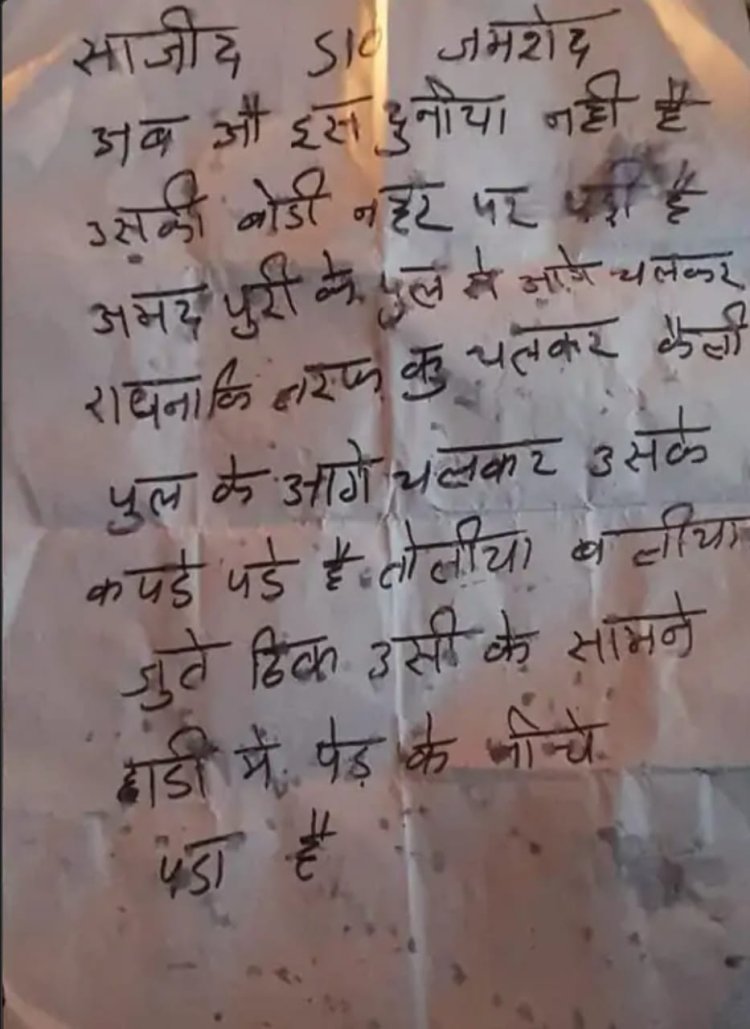 साजीद S/O जमशेद
अब औ इस दुनीया नही है
उसकी बोडी नहर पर पड़ी है
अमद पुरी के पुल से आगे चलकर
राधनाकि तरफ कु चलकर कैली
पुल के आगे चलकर उसके
कपडे पडे है तोलीया ब लीया
जुते ठिक उसी के सामने
हाडी मे पेड़ के नीचे
पडा है